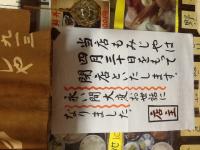 当店もみじやは
四月三十日をもって
閉店といたします。
永い間大変お世話に
なりました。
店主
九三